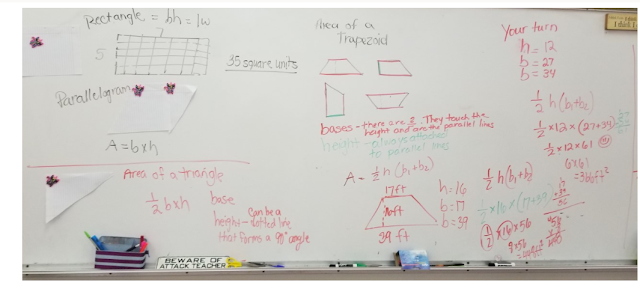 Rectangle = bh = lw
7
5
35 square units
Parallelogram
A = bxh
Area of a triangle
1/2 bxh
base
height - dotted line
can be a
that forms a 90° angle
Area of a
Trapezoid
bases - there are 2. They touch the
height and are the parallel lines
height - always attached
to parallel lines
A = 1/2 h (b₁+b₂)
17ft
16ft
39 ft
h=16
b=17
b=39
1/2 h(b₁+b₂)
1/2 x16 x (17+39)
1/2 x16 x 56
8x56
Your turn
h = 12
b = 27
b = 34
1/2 h(b₁+b₂)
1/2 x12 x (27+34)
1/2 x 12 x 61
6x61
=366ft²
BEWARE OF
ATTACK TEACHER